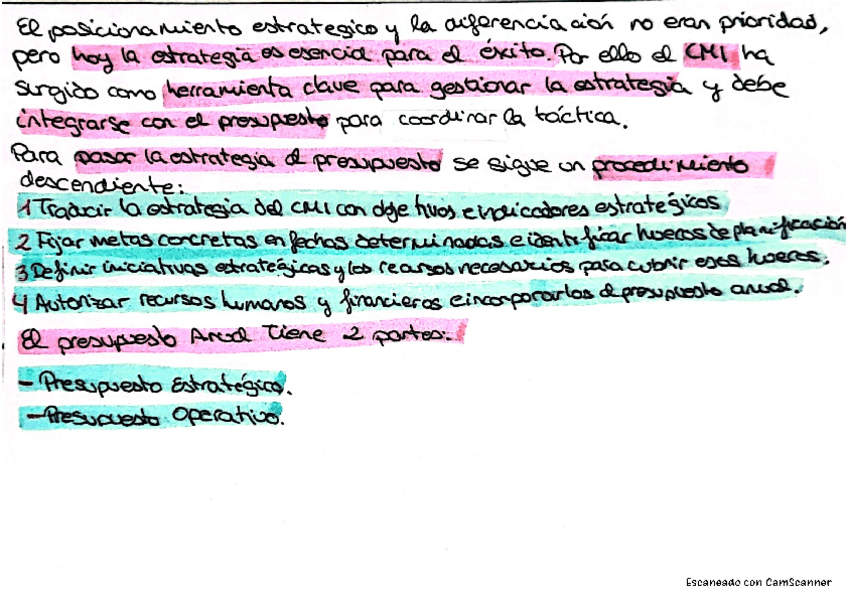 El posicionamiento estrategico y la diferenciación no eran prioridad,
pero hoy la estrategia es esencial para el éxito. Por ello el CMI ha
surgido como herramienta clave para gestionar la estrategia y debe
integrarse con el presupuesto para coordinar la táctica.
Para pasar la estrategia al presupuesto se sigue un procedimiento
descendiente:
1 Traducir la estrategia del CMI con objetivos e indicadores estratégicos
2 Fijar metas concretas en fechas determinadas e identificar huecos de planificación
3 Definir iniciativas estratégicas y los recursos necesarios para cubrir esos huecos.
4 Autorizar recursos humanos y financieros e incorporarlos al presupuesto anual.
El presupuesto Anual Tiene 2 partes:
- Presupuesto Estratégico.
- Presupuesto Operativo.
Escaneado con CamScanner